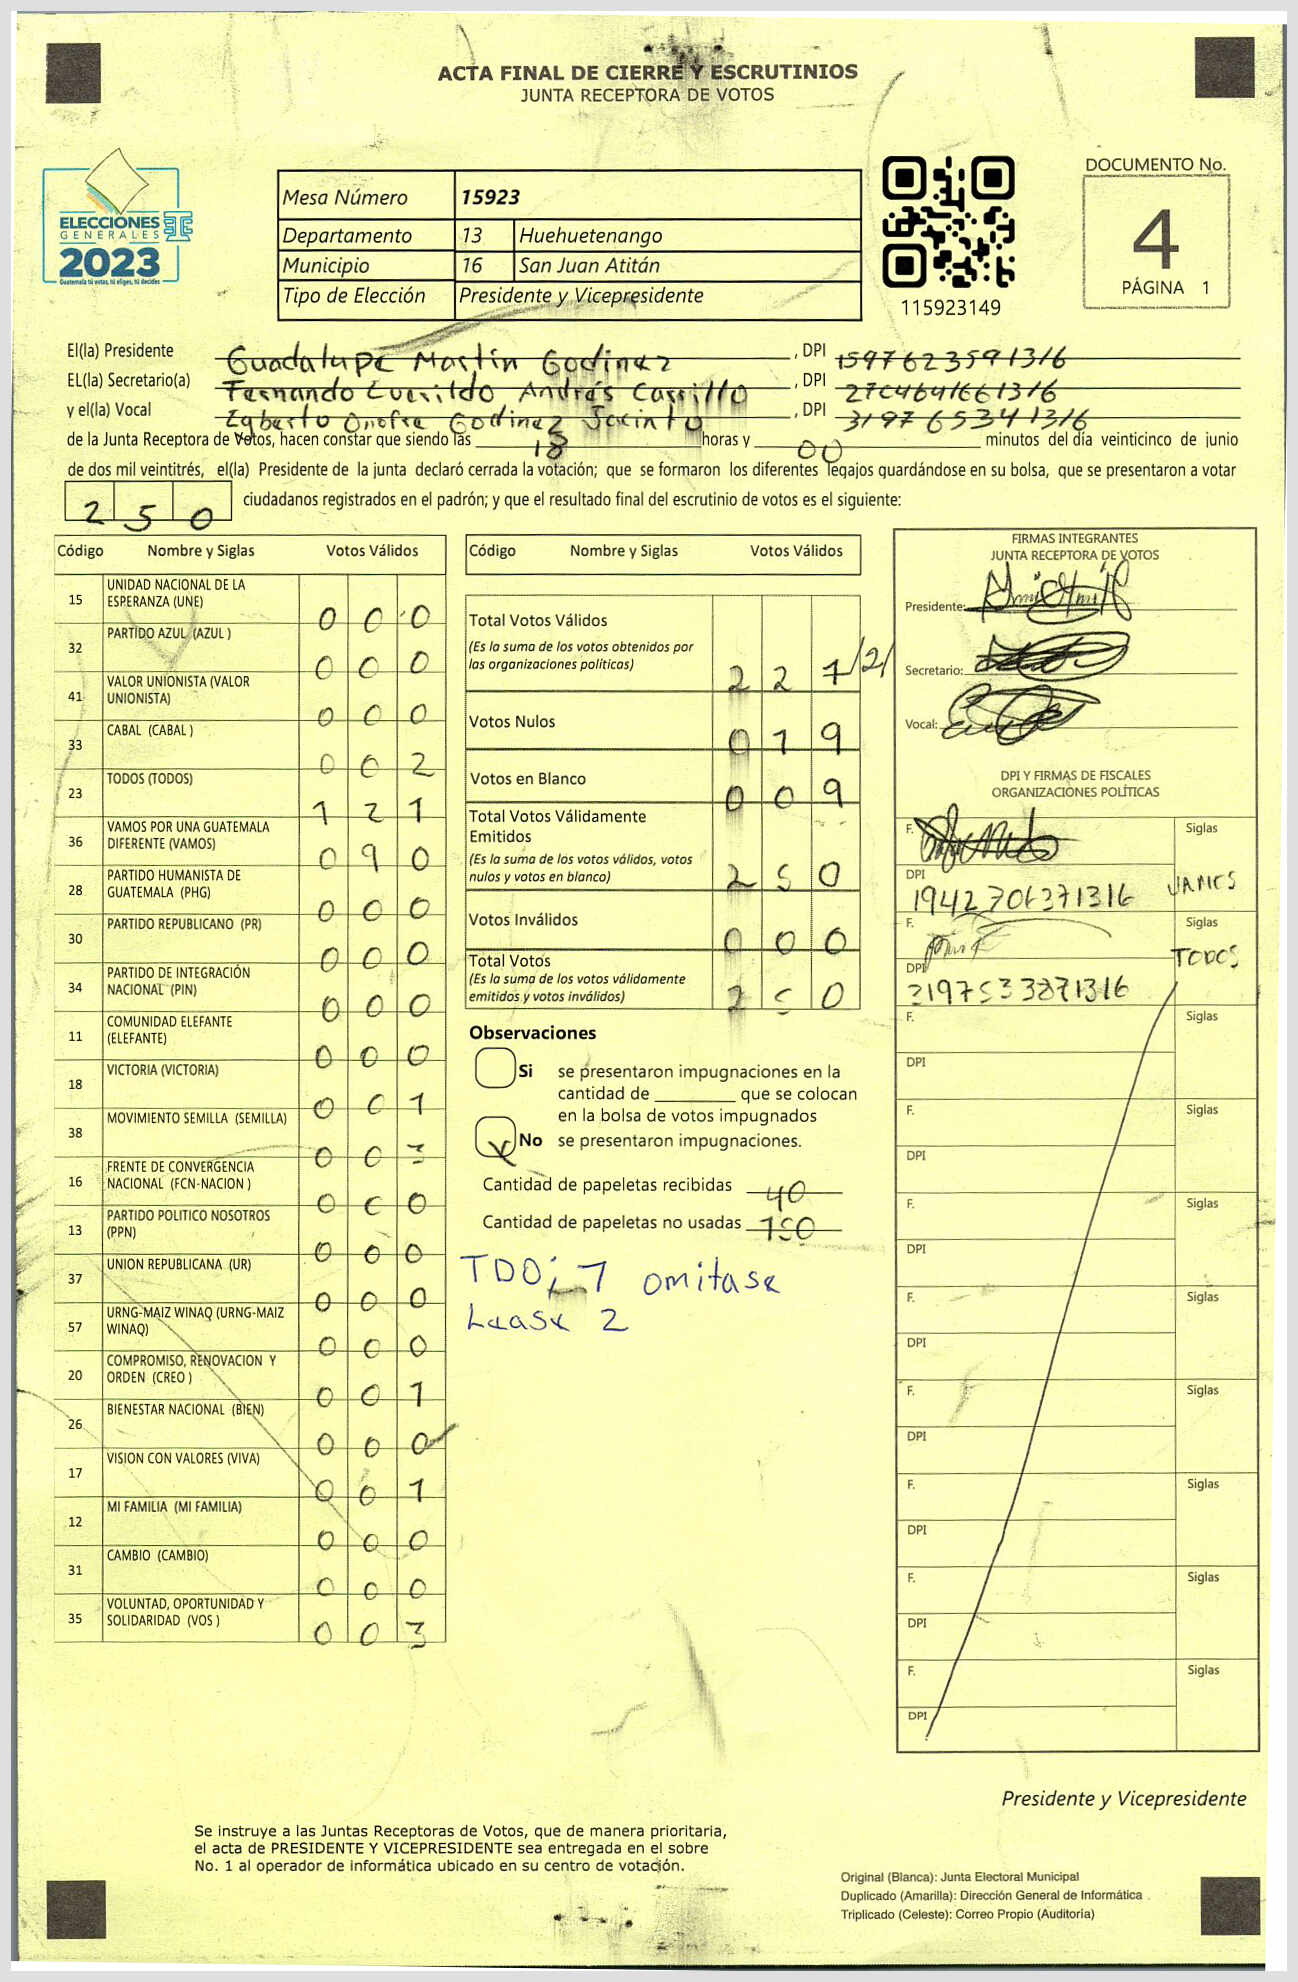 ACTA FINAL DE CIERRE Y ESCRUTINIOS
JUNTA RECEPTORA DE VOTOS
ELECCIONES
GENERALES
2023
Guatemala tú votas, tú eliges, tú decides
Mesa Número 15923
Departamento 13 Huehuetenango
Municipio 16 San Juan Atitán
Tipo de Elección Presidente y Vicepresidente
115923149
DOCUMENTO No.
4
PÁGINA 1
El(la) Presidente Guadalupe Martín Godinez, DPI 1597623591316
EL(la) Secretario(a) Fernando Everildo Andrés Carrillo, DPI 2704641661316
y el(la) Vocal Egberto Onofre Godinez Jacinto, DPI 3197653411316
de la Junta Receptora de Votos, hacen constar que siendo las 18 horas y 00 minutos del día veinticinco de junio
de dos mil veintitrés, el(la) Presidente de la junta declaró cerrada la votación; que se formaron los diferentes legajos guardándose en su bolsa, que se presentaron a votar
250 ciudadanos registrados en el padrón; y que el resultado final del escrutinio de votos es el siguiente:
Código Nombre y Siglas Votos Válidos
15 UNIDAD NACIONAL DE LA ESPERANZA (UNE) 0 0 0
32 PARTIDO AZUL (AZUL ) 0 0 0
41 VALOR UNIONISTA (VALOR UNIONISTA) 0 0 0
33 CABAL (CABAL ) 0 0 2
23 TODOS (TODOS) 1 2 1
36 VAMOS POR UNA GUATEMALA DIFERENTE (VAMOS) 0 9 0
28 PARTIDO HUMANISTA DE GUATEMALA (PHG) 0 0 0
30 PARTIDO REPUBLICANO (PR) 0 0 0
34 PARTIDO DE INTEGRACIÓN NACIONAL (PIN) 0 0 0
11 COMUNIDAD ELEFANTE (ELEFANTE) 0 0 0
18 VICTORIA (VICTORIA) 0 0 1
38 MOVIMIENTO SEMILLA (SEMILLA) 0 0 3
16 FRENTE DE CONVERGENCIA NACIONAL (FCN-NACION ) 0 0 0
13 PARTIDO POLITICO NOSOTROS (PPN) 0 0 0
37 UNION REPUBLICANA (UR) 0 0 0
57 URNG-MAIZ WINAQ (URNG-MAIZ WINAQ) 0 0 0
20 COMPROMISO, RENOVACION Y ORDEN (CREO ) 0 0 1
26 BIENESTAR NACIONAL (BIEN) 0 0 0
17 VISION CON VALORES (VIVA) 0 0 1
12 MI FAMILIA (MI FAMILIA) 0 0 0
31 CAMBIO (CAMBIO) 0 0 0
35 VOLUNTAD, OPORTUNIDAD Y SOLIDARIDAD (VOS ) 0 0 3
Código Nombre y Siglas Votos Válidos
Total Votos Válidos
(Es la suma de los votos obtenidos por
las organizaciones políticas) 2 2 7/2/
Votos Nulos 0 1 9
Votos en Blanco 0 0 9
Total Votos Válidamente
Emitidos
(Es la suma de los votos válidos, votos
nulos y votos en blanco) 2 5 0
Votos Inválidos 0 0 0
Total Votos
(Es la suma de los votos válidamente
emitidos y votos inválidos) 2 5 0
Observaciones
Si se presentaron impugnaciones en la
cantidad de que se colocan
en la bolsa de votos impugnados
X No se presentaron impugnaciones.
Cantidad de papeletas recibidas 40
Cantidad de papeletas no usadas 150
TDO; 7 omitase
Lease 2
FIRMAS INTEGRANTES
JUNTA RECEPTORA DE VOTOS
Presidente:
Secretario:
Vocal:
DPI Y FIRMAS DE FISCALES
ORGANIZACIONES POLÍTICAS
F. Siglas
DPI 1942706371316 VAMOS
F. Siglas
DPI 3197533871316 TODOS
F. Siglas
DPI
F. Siglas
DPI
F. Siglas
DPI
F. Siglas
DPI
F. Siglas
DPI
F. Siglas
DPI
F. Siglas
DPI
F. Siglas
DPI
Presidente y Vicepresidente
Se instruye a las Juntas Receptoras de Votos, que de manera prioritaria,
el acta de PRESIDENTE Y VICEPRESIDENTE sea entregada en el sobre
No. 1 al operador de informática ubicado en su centro de votación.
Original (Blanca): Junta Electoral Municipal
Duplicado (Amarilla): Dirección General de Informática
Triplicado (Celeste): Correo Propio (Auditoría)